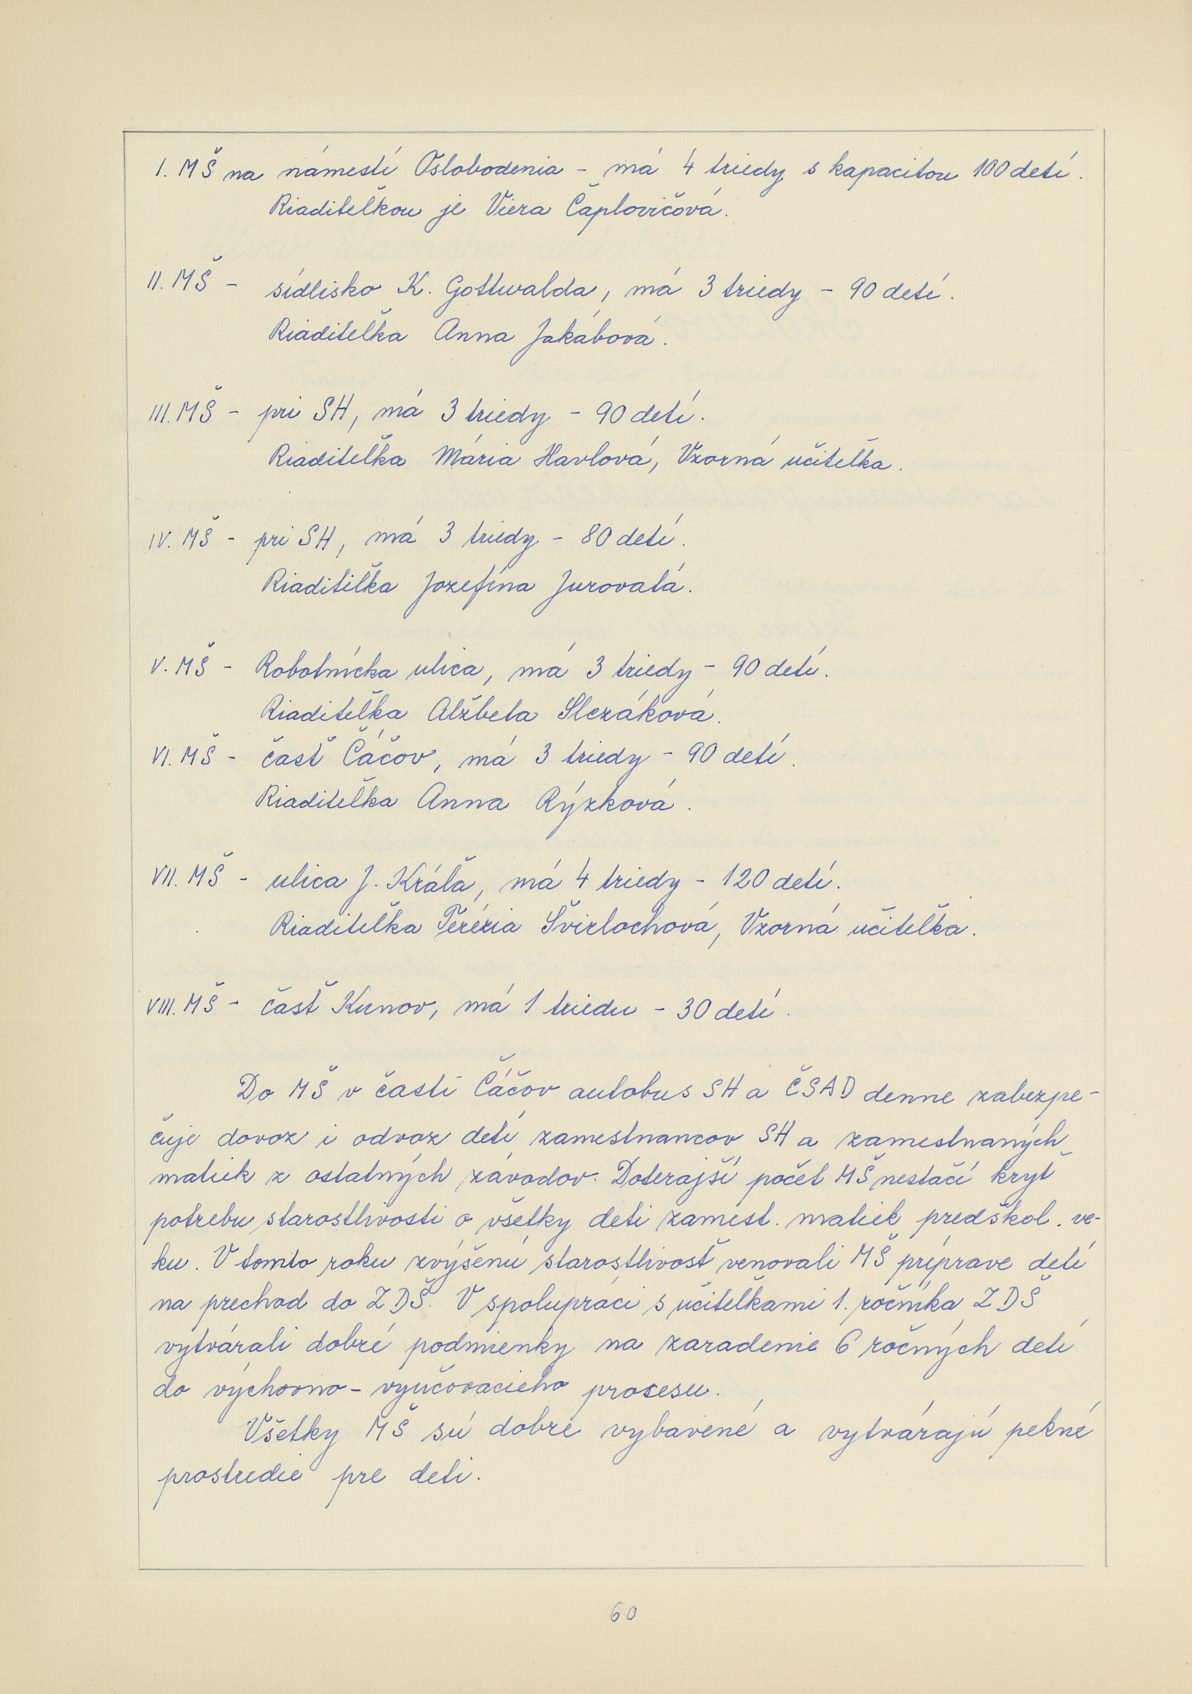 I. MŠ na námestí Oslobodenia - má 4 triedy s kapacitou 100 detí.
Riaditeľkou je Viera Čaplovičová.
II. MŠ - sídlisko K. Gottwalda, má 3 triedy - 90 detí.
Riaditeľka Anna Jakábová.
III. MŠ - pri SH, má 3 triedy - 90 detí.
Riaditeľka Mária Havlová, Vzorná učiteľka.
IV. MŠ - pri SH, má 3 triedy - 80 detí.
Riaditeľka Jozefína Jurovatá.
V. MŠ - Robotnícka ulica, má 3 triedy - 90 detí.
Riaditeľka Alžbeta Slezáková.
VI. MŠ - časť Čáčov, má 3 triedy - 90 detí.
Riaditeľka Anna Rýzková.
VII. MŠ - ulica J. Kráľa, má 4 triedy - 120 detí.
Riaditeľka Švirlochová, Vzorná učiteľka.
VIII. MŠ - časť Kunov, má 1 triedu - 30 detí.
Do MŠ v časti Čáčov autobus SH a ČSAD denne zabezpe-
čuje dovoz i odvoz detí zamestnancov SH a zamestnaných
matiek z ostatných závodov. Doterajší počet MŠ nestačí kryť
potrebu starostlivosti o všetky deti zamest. matiek predškol. ve-
ku. V tomto roku zvýšenú starostlivosť venovali MŠ príprave detí
na prechod do ZDŠ. V spolupráci s učiteľkami 1. ročníka ZDŠ
vytvárali dobré podmienky na zaradenie 6 ročných detí
do výchovno-vyučovacieho procesu.
Všetky MŠ sú dobre vybavené a vytvárajú pekné
prostredie pre deti.
60